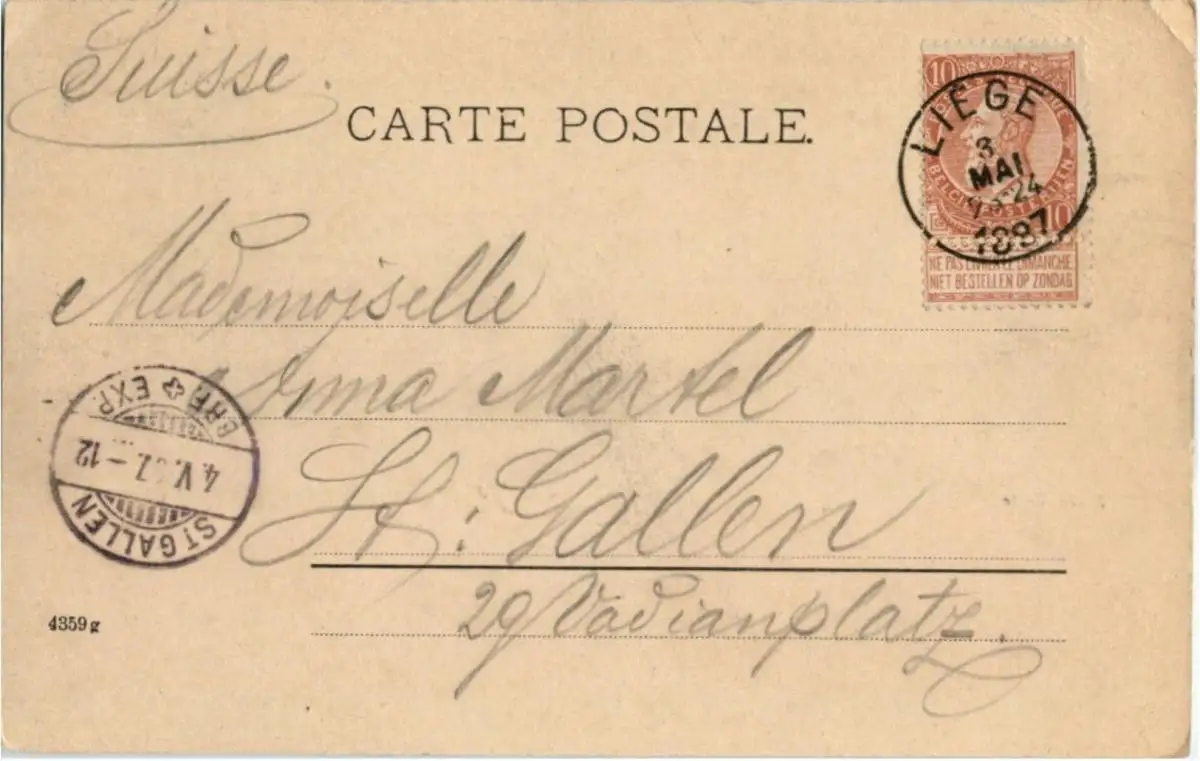 Suisse.
CARTE POSTALE.
10
LIÈGE
3
MAI
1897
10
NE PAS LIVRER LE DIMANCHE
NIET BESTELLEN OP ZONDAG
Mademoiselle
Anna Martel
St: Gallen
29 Vadianplatz.
BRF. EXP.
4.V. 7.-12
ST GALLEN
4359 g